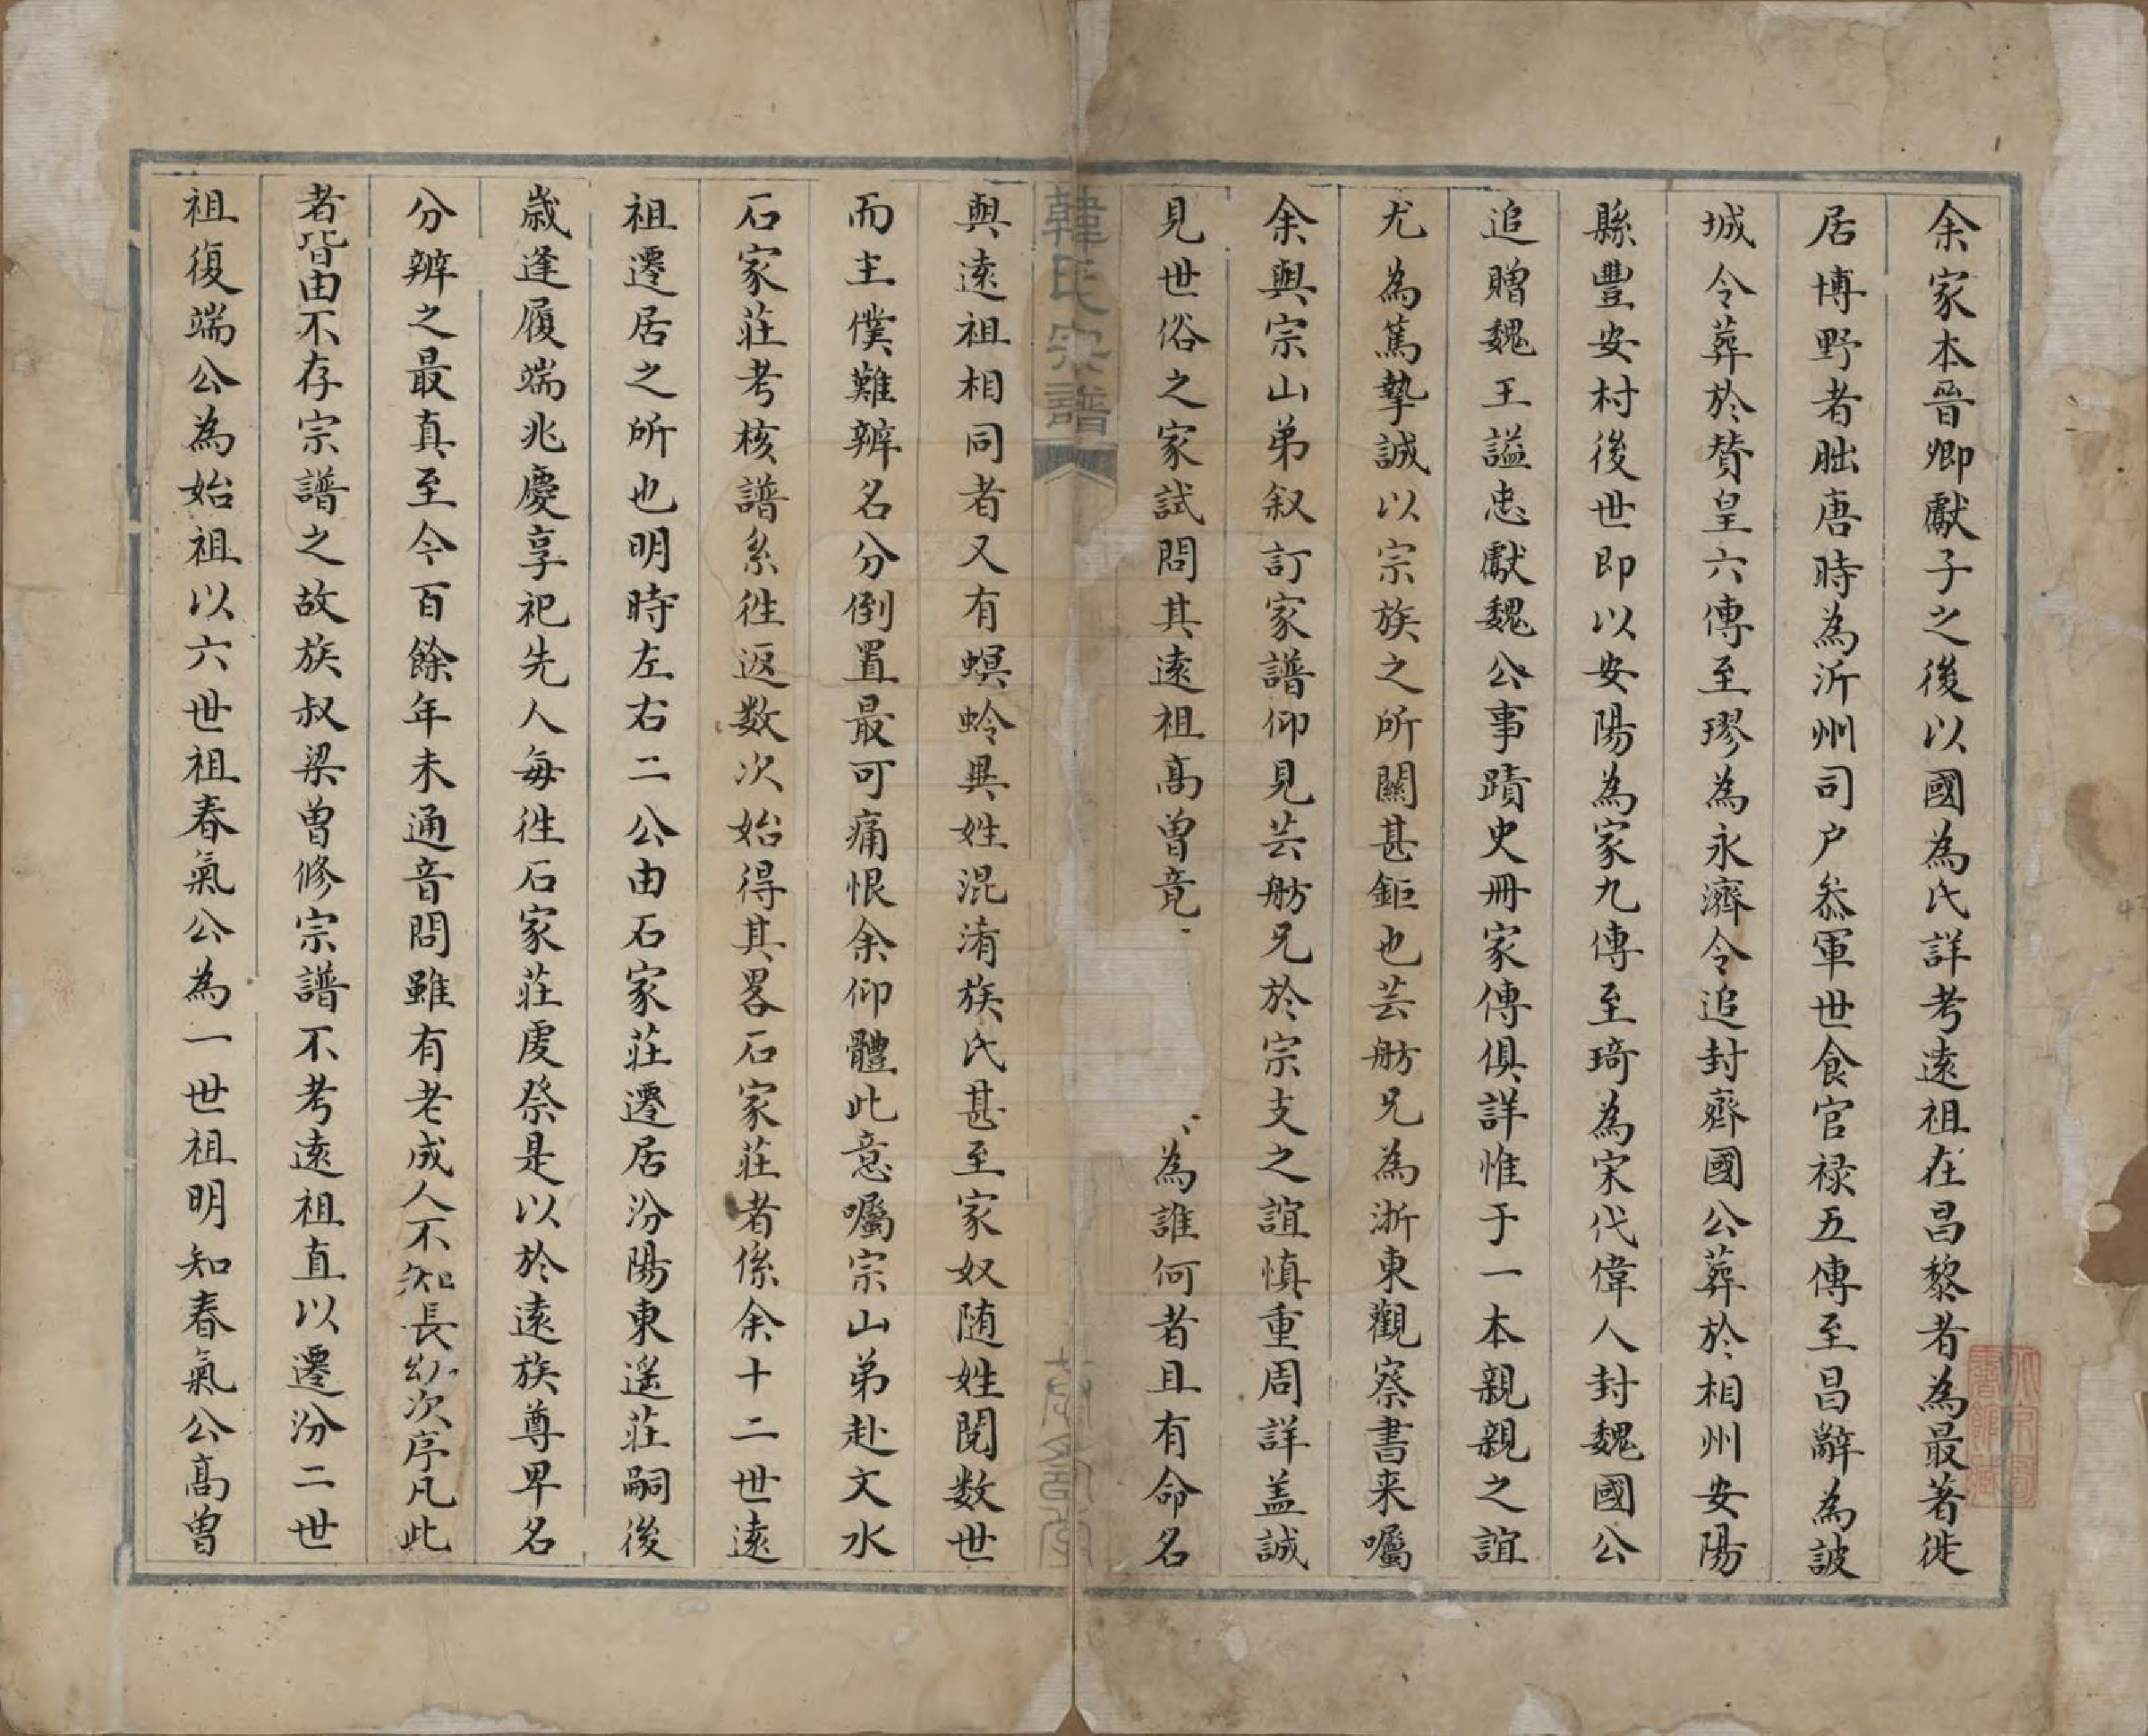 余家本晉卿獻子之後以國為氏詳考遠祖在昌黎者為最著徙
居博野者朏唐時為沂州司户叅軍世食官禄五傳至昌辭為詖
城令葬於賛皇六傳至璆為永濟令追封齊國公葬於相州安陽
縣豐安村後世即以安陽為家九傳至琦為宋代偉人封魏國公
追贈魏王謚忠獻魏公事蹟史冊家傳俱詳惟于一本親親之誼
尤為篤摯誠以宗族之所關甚鉅也芸舫兄為浙東觀察書来囑
余與宗山弟叙訂家譜仰見芸舫兄於宗支之誼慎重周詳盖誠
見世俗之家試問其遠祖高曾竟為誰何者且有命名
韓氏宗譜
與遠祖相同者又有螟蛉異姓混淆族氏甚至家奴随姓閲数世
而主僕難辨名分倒置最可痛恨余仰體此意囑宗山弟赴文水
石家莊考核譜系徃返数次始得其畧石家莊者係余十二世遠
祖遷居之所也明時左右二公由石家莊遷居汾陽東遥莊嗣後
歳逢履端兆慶享祀先人每徃石家莊虔祭是以於遠族尊卑名
分辨之最真至今百餘年未通音問雖有老成人不知長幼次序凡此
者皆由不存宗譜之故族叔梁曽修宗譜不考遠祖直以遷汾二世
祖復端公為始祖以六世祖春氣公為一世祖明知春氣公髙曽